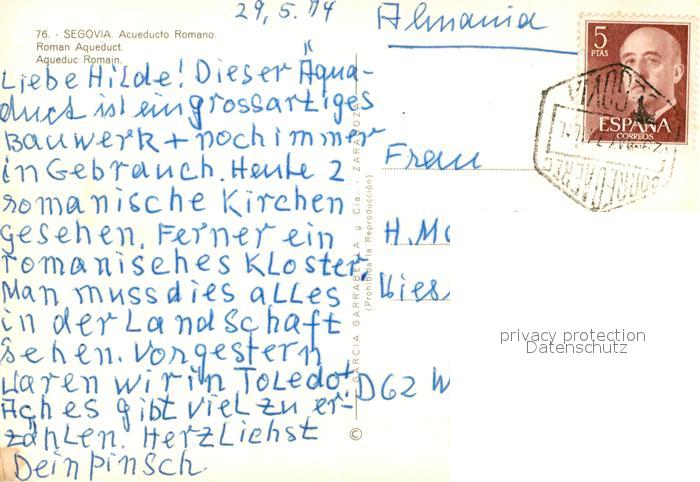 29.5.74
Almania
76. - SEGOVIA. Acueducto Romano.
Roman Aqueduct.
Aqueduc Romain.
Liebe Hilde! Dieser Äqua-
duct ist ein grossartiges
Bauwerk + noch immer
in Gebrauch. Heute 2
romanische Kirchen
gesehen. Ferner ein
romanisches Kloster.
Man muss dies alles
in der Landschaft
sehen. Vorgestern
waren wir in Toledo.
Ach es gibt viel zu er-
zählen. Herzlichst
Dein Pinsch.
© GARCIA GARRABELLA y Cía. - ZARAGOZA
(Prohibida la Reproducción)
5
PTAS
ESPAÑA
CORREOS
Frau
H. M
Wies
D62 W
privacy protection
Datenschutz